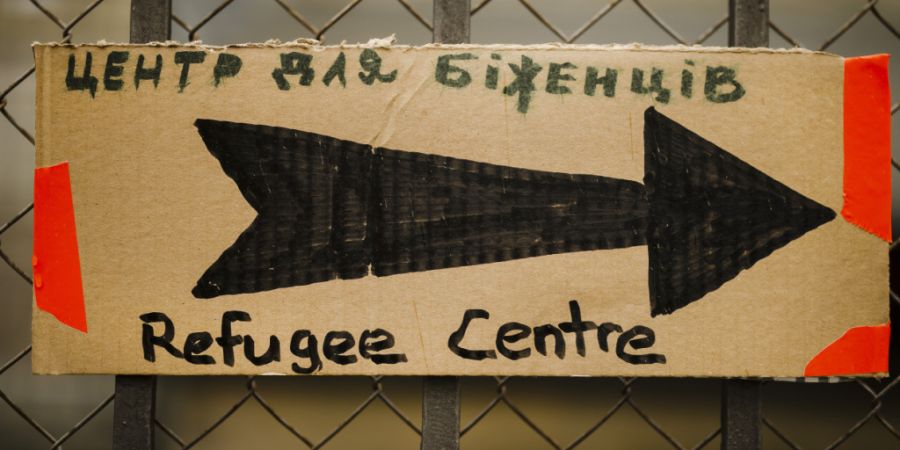 ЦЕНТР ДЛЯ БіЖЕНЦіВ
Refugee Centre